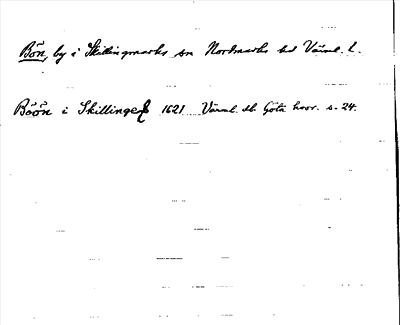 Bön, by i Skillingmarks sn Nordmarks hd Värml. l.
Böön i Skillinge 1621 Värml. Göta hovr. s. 24.